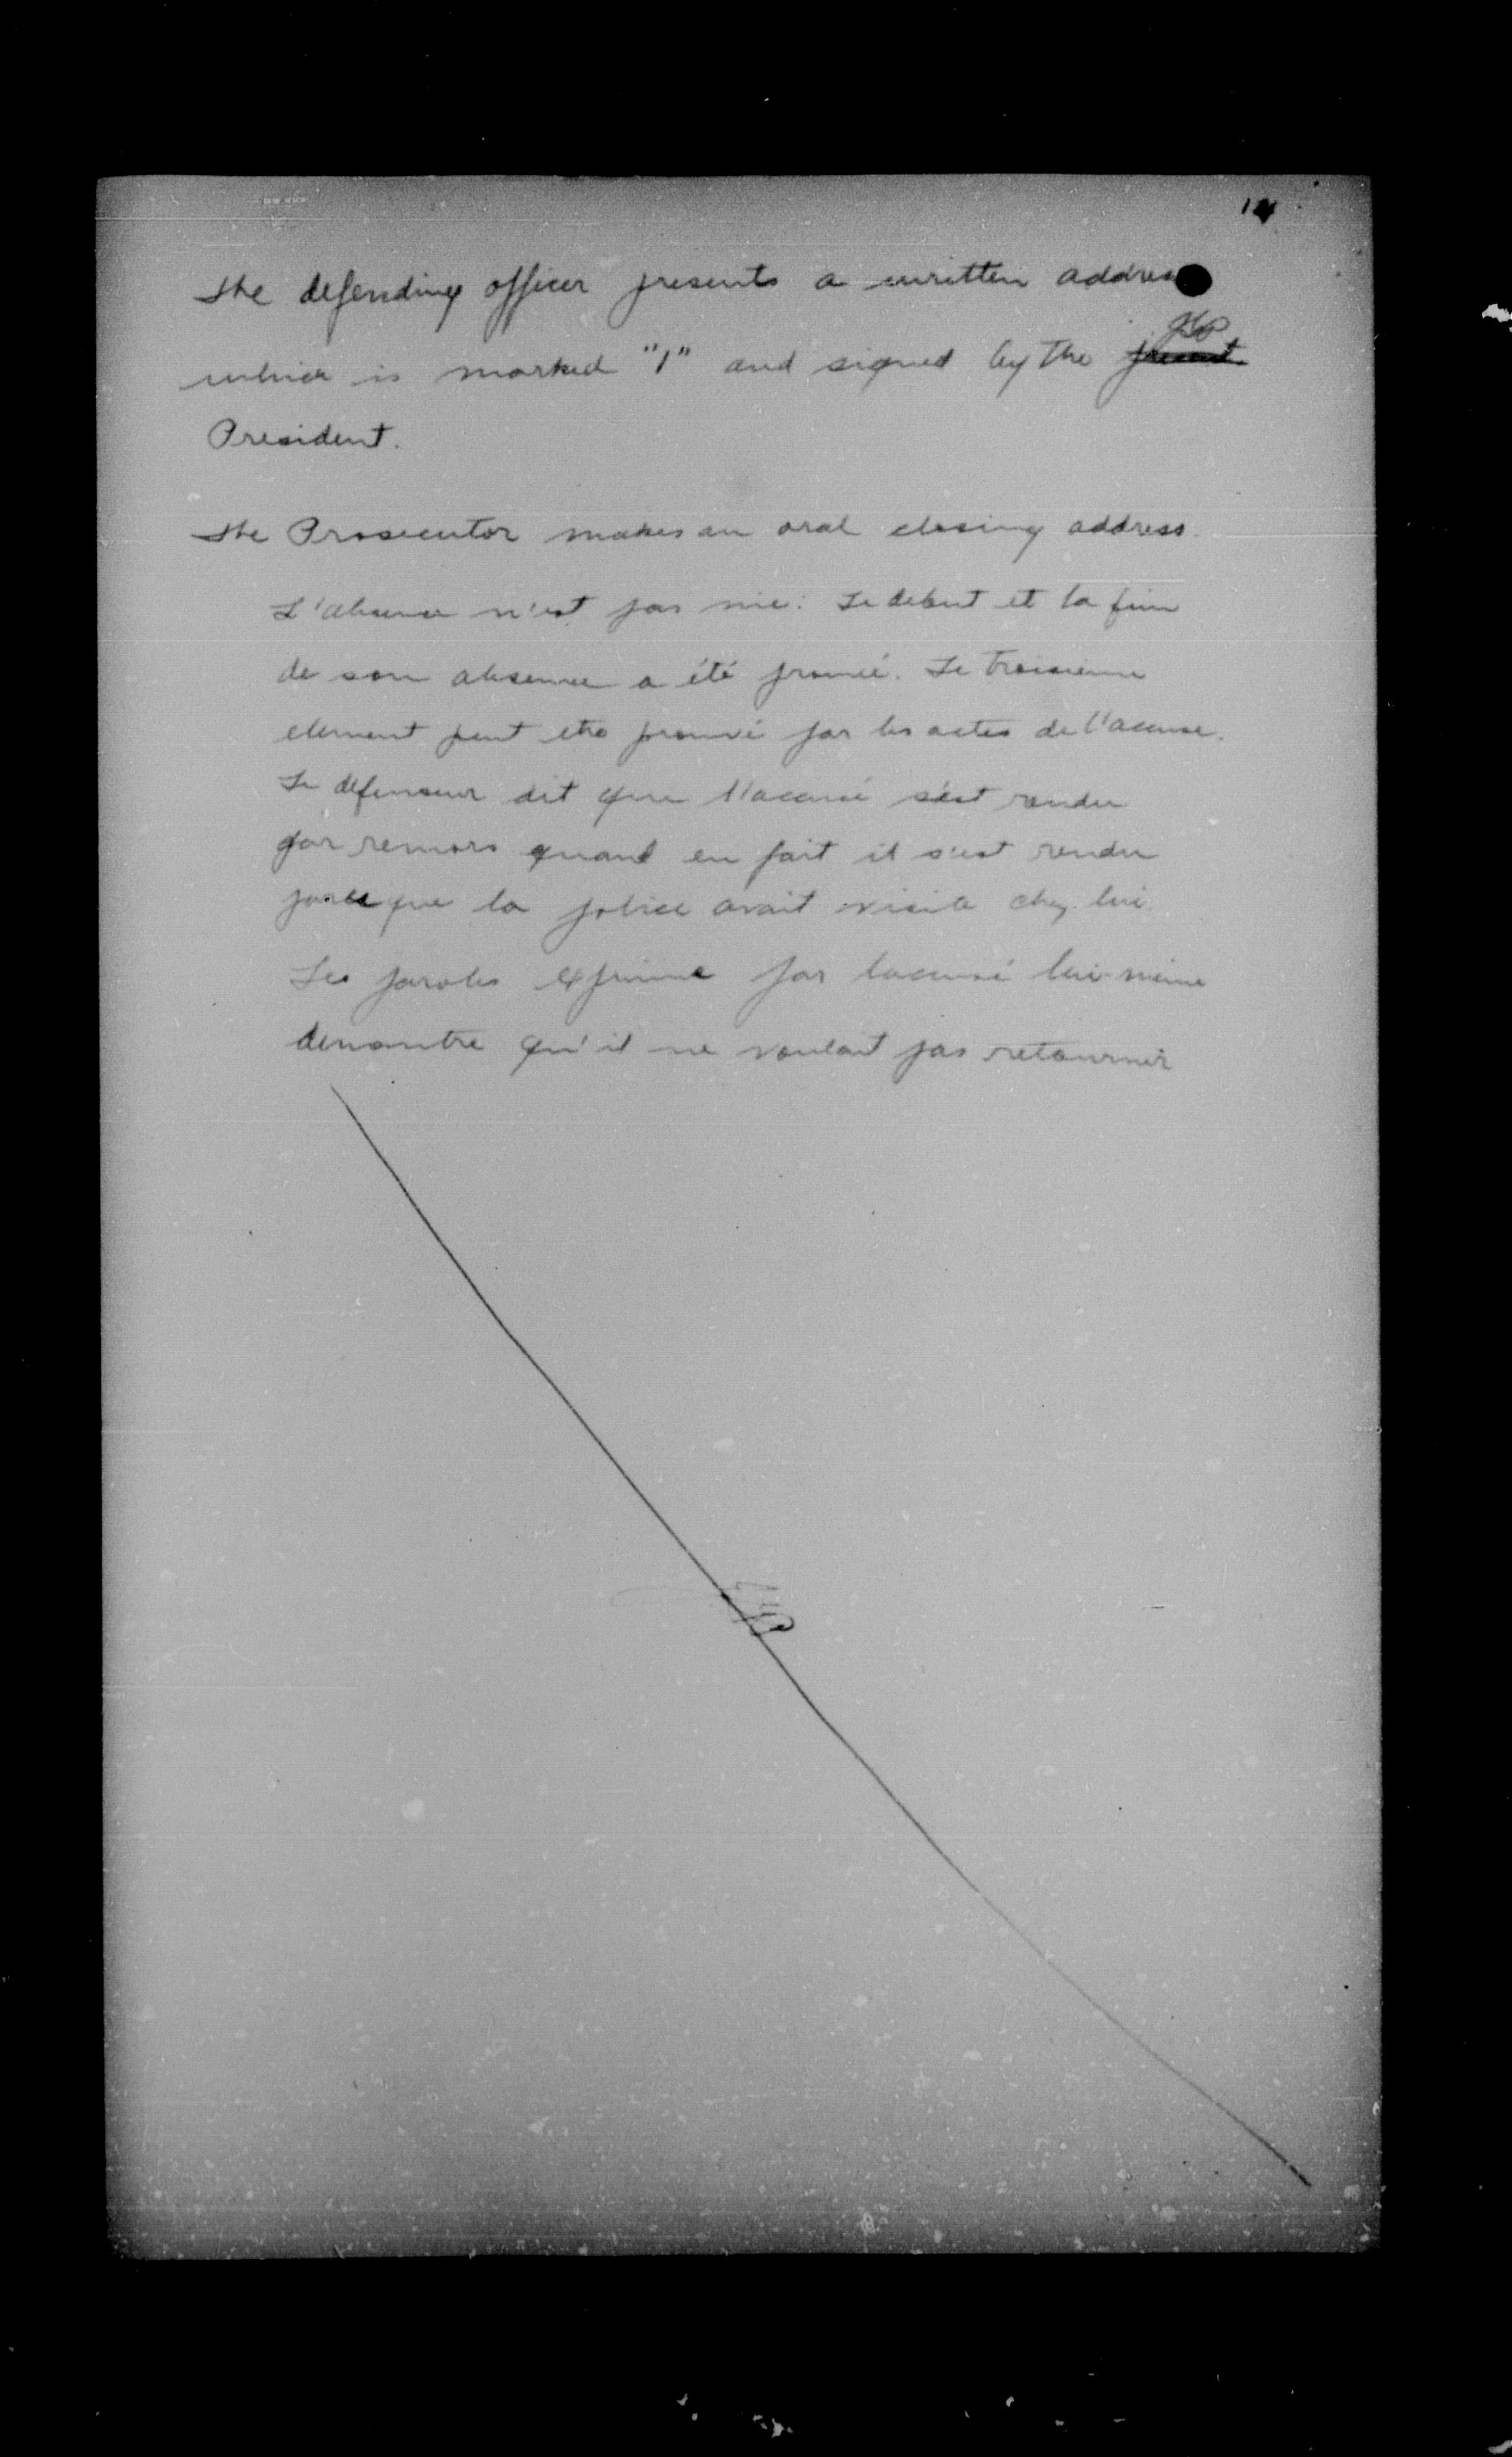 The defending officer presents a written address
which is marked "1" and signed by the
President.
The Prosecutor makes an oral closing address.
L'absence n'est pas nie: Le debut et la fin
de son absence a été prouvé. Le troisieme
element peut etre prouvé par les actes de l'accuse.
Le défenseur dit que l'accusé s'est rendu
par remors quant en fait il s'est rendu
parceque la police avait visite chez lui.
Les paroles exprime par laccusé lui-même
demontre qu'il ne voulait pas retourner